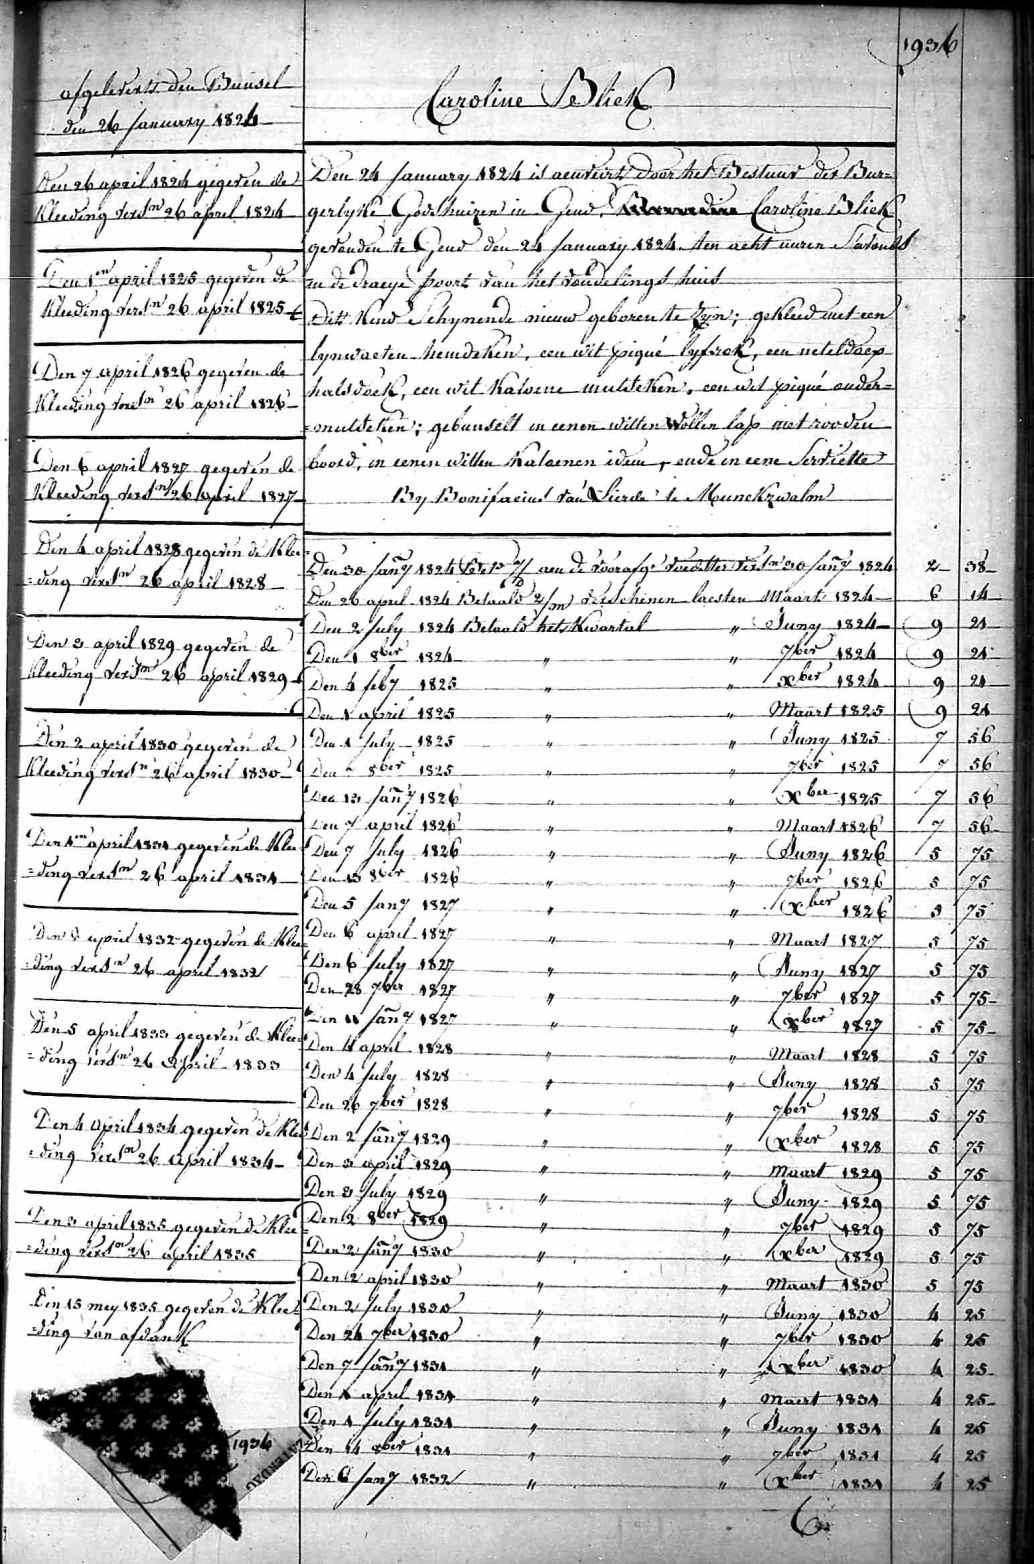 1936
afgelevert den Bunsel
den 26 january 1824
Caroline Bliek
Den 26 april 1824 gegeven de
kleeding verst.n 26 april 1824
Den 1en april 1825 gegeven de
kleeding verst.n 26 april 1825
Den 7 april 1826 gegeven de
kleeding verst.n 26 april 1826
Den 6 april 1827 gegeven de
kleeding verst.n 26 april 1827
Den 4 april 1828 gegeven de klee=
=ding verst.n 26 april 1828
Den 3 april 1829 gegeven de
kleeding verst.n 26 april 1829
Den 2 april 1830 gegeven de
kleeding verst.n 26 april 1830
Den 1en april 1831 gegeven de klee=
=ding verst.n 26 april 1831
Den april 1832 gegeven de klee=
=ding verst.n 26 april 1832
Den 5 april 1833 gegeven de klee=
=ding verst.n 26 april 1833
Den 4 april 1834 gegeven de klee=
=ding verst.n 26 april 1834
Den 3 april 1835 gegeven de klee=
=ding verst.n 26 april 1835
Den 15 mey 1835 gegeven de klee=
=ding van afdank
1936
Den 24 january 1824 is aenveirt door het Bestuur der Bur=
gerlyke Godshuizen in Gend, Caroline Bliek
gevonden te Gend den 24 january 1824 ten acht uuren s'avonds
in de draeye poort van het vondelings huis
Dit kind schynende nieuw geboren te zyn; gekleed met een
lynwaeten hemdeken, een wit piqué lyfrok, een neteldoek
halsdoek, een wit katoene mutsken, een wit piqué onder=
=mutsken; gebunselt in eenen witten wollen lap met rooden
boord, in eenen witten katoenen idem, ende in eene serviette
By Bonifacius van Lierde te Munckzwalm
Den 30 jan.y 1824 aen de voorafg. voedster verst.n 30 jan.y 1824 2 38
Den 26 april 1824 Betaald 2/m verschenen laesten Maart 1824 6 14
Den 2 july 1824 Betaald het kwartael " Juny 1824 9 21
Den 1 8ber 1824 " " 7ber 1824 9 21
Den 4 feby 1825 " " Xber 1824 9 21
Den 1 april 1825 " " Maart 1825 9 21
Den 1 july 1825 " " Juny 1825 7 56
Den 8ber 1825 " " 7ber 1825 7 56
Den 13 jan.y 1826 " " Xber 1825 7 56
Den 7 april 1826 " " Maart 1826 7 56
Den 7 july 1826 " " Juny 1826 5 75
Den 13 8ber 1826 " " 7ber 1826 5 75
Den 5 jany 1827 " " Xber 1826 5 75
Den 6 april 1827 " " Maart 1827 5 75
Den 6 july 1827 " " Juny 1827 5 75
Den 28 7ber 1827 " " 7ber 1827 5 75
Den 11 jan.y 1827 " " Xber 1827 5 75
Den 4 april 1828 " " Maart 1828 5 75
Den 4 july 1828 " " Juny 1828 5 75
Den 26 7ber 1828 " " 7ber 1828 5 75
Den 2 jan.y 1829 " " Xber 1828 5 75
Den 3 april 1829 " " Maart 1829 5 75
Den 3 july 1829 " " Juny 1829 5 75
Den 2 8ber 1829 " " 7ber 1829 5 75
Den 2 jan.y 1830 " " Xber 1829 5 75
Den 2 april 1830 " " Maart 1830 5 75
Den 2 july 1830 " " Juny 1830 4 25
Den 24 7ber 1830 " " 7ber 1830 4 25
Den 7 jan.y 1831 " " Xber 1830 4 25
Den 1 april 1831 " " Maert 1831 4 25
Den 1 july 1831 " " Juny 1831 4 25
Den 14 8ber 1831 " " 7ber 1831 4 25
Den 6 jany 1832 " " Xber 1831 4 25